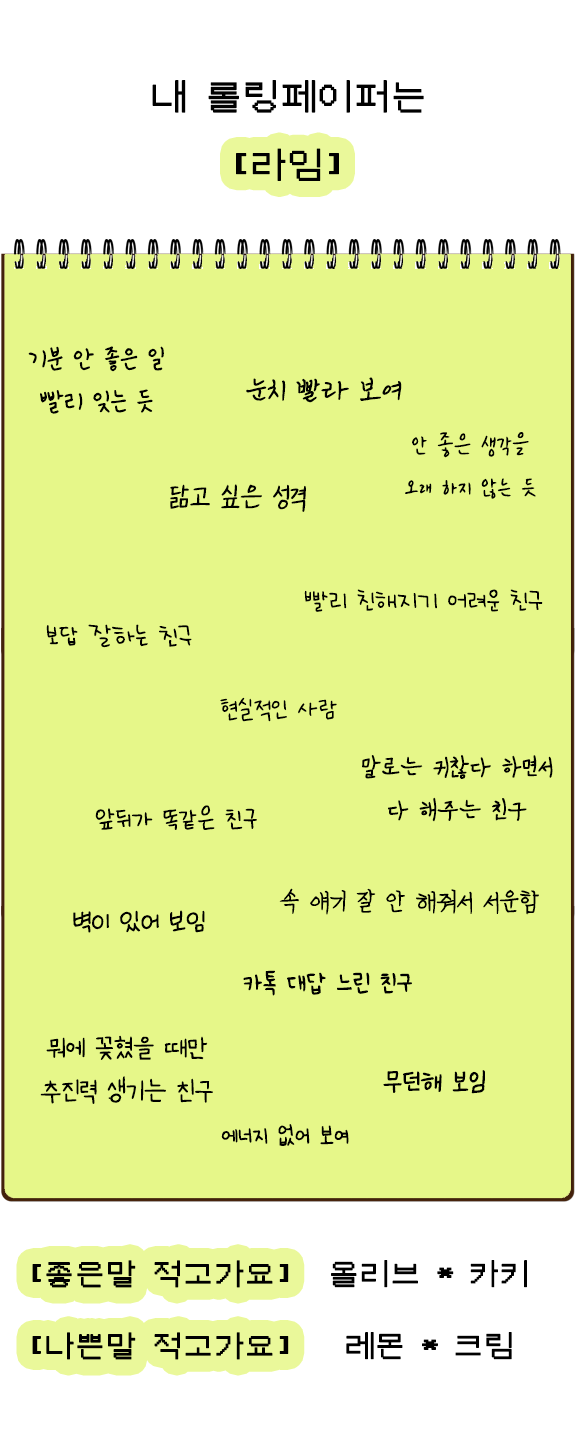 내 롤링페이퍼는
[라임]
기분 안 좋은 일
빨리 잊는 듯
눈치 빨라 보여
안 좋은 생각을
오래 하지 않는 듯
닮고 싶은 성격
빨리 친해지기 어려운 친구
보답 잘하는 친구
현실적인 사람
말로는 귀찮다 하면서
다 해주는 친구
앞뒤가 똑같은 친구
속 얘기 잘 안 해줘서 서운함
벽이 있어 보임
카톡 대답 느린 친구
뭐에 꽂혔을 때만
추진력 생기는 친구
무던해 보임
에너지 없어 보여
[좋은말 적고가요] 올리브 * 카키
[나쁜말 적고가요] 레몬 * 크림